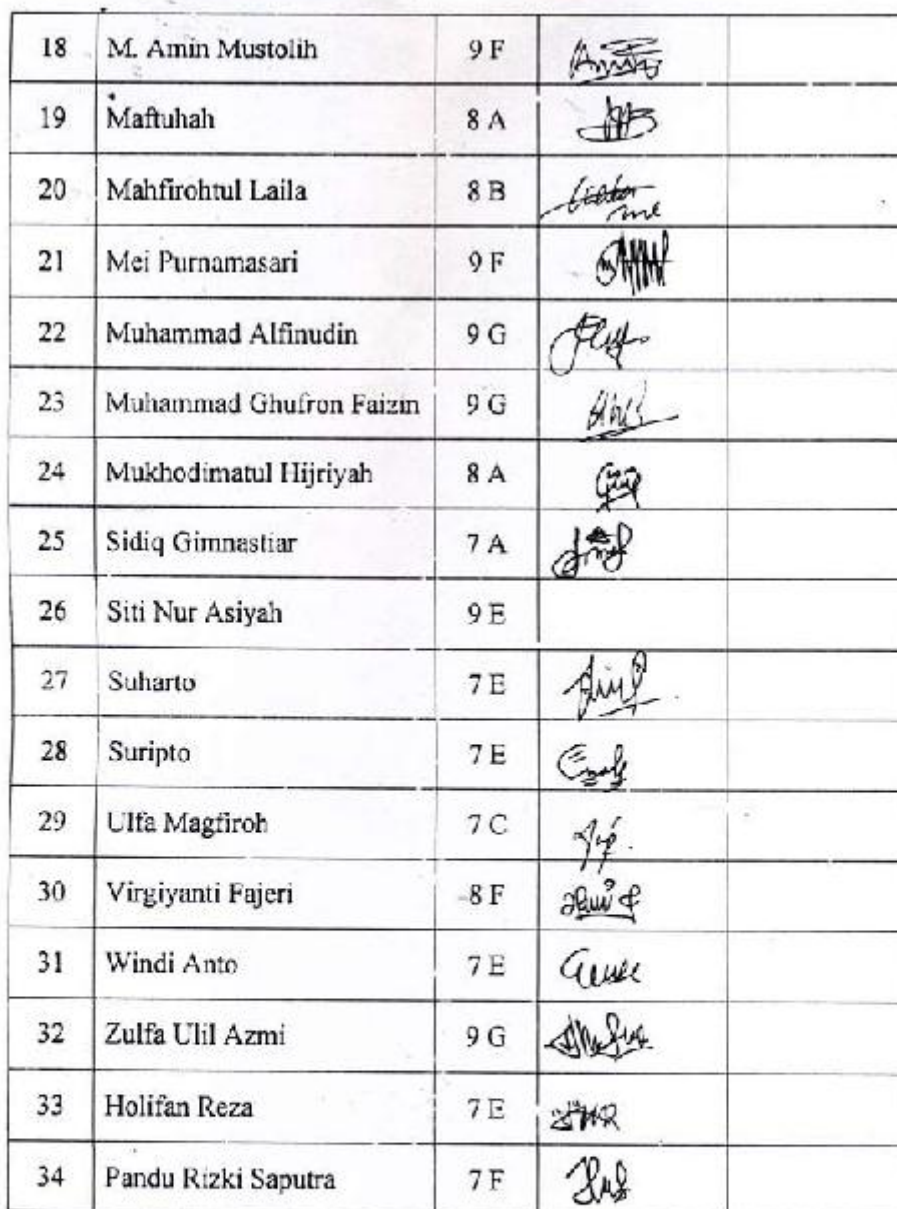 18 M. Amin Mustolih 9 F
19 Maftuhah 8 A
20 Mahfirohtul Laila 8 B
21 Mei Purnamasari 9 F
22 Muhammad Alfinudin 9 G
23 Muhammad Ghufron Faizin 9 G
24 Mukhodimatul Hijriyah 8 A
25 Sidiq Gimnastiar 7 A
26 Siti Nur Asiyah 9 E
27 Suharto 7 E
28 Suripto 7 E
29 Ulfa Magfiroh 7 C
30 Virgiyanti Fajeri 8 F
31 Windi Anto 7 E
32 Zulfa Ulil Azmi 9 G
33 Holifan Reza 7 E
34 Pandu Rizki Saputra 7 F